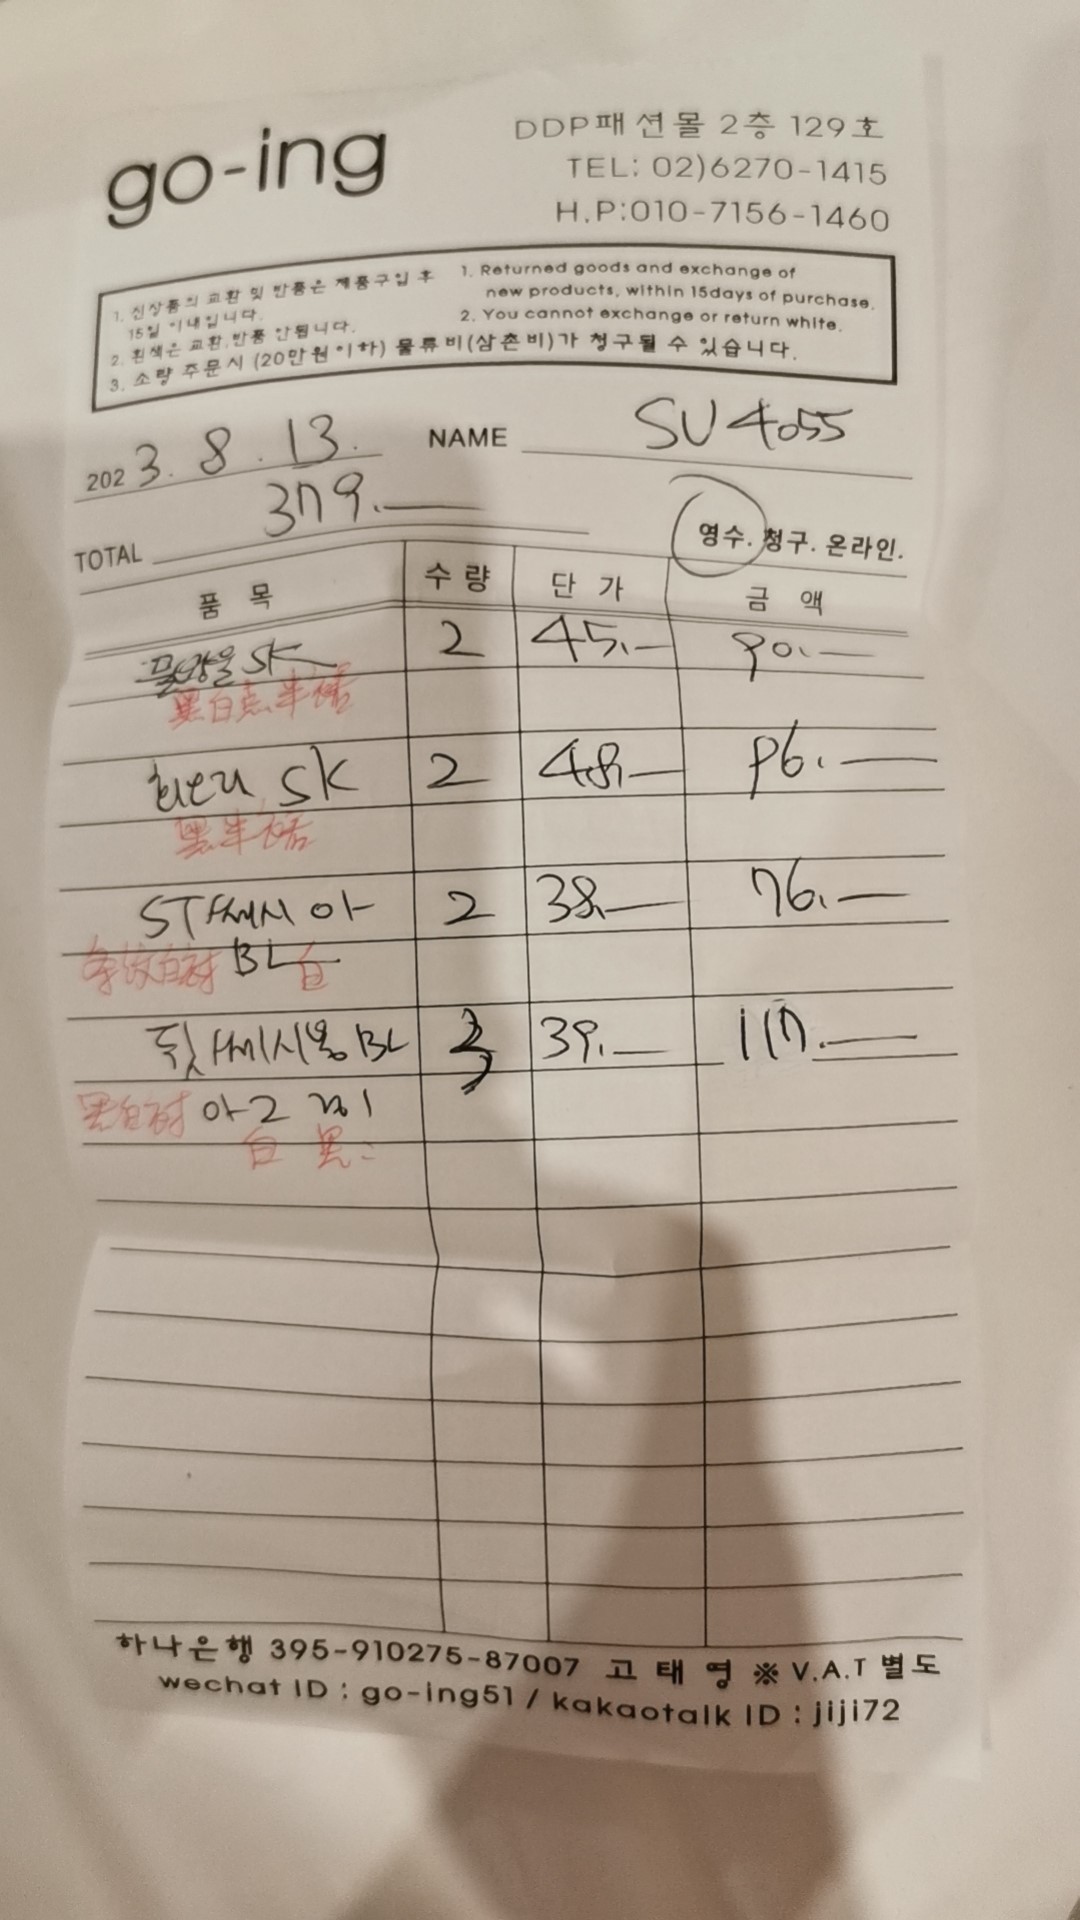 go-ing
DDP패션몰 2층 129호
TEL: 02)6270-1415
H.P:010-7156-1460
1. 신상품의 교환 및 반품은 제품구입 후
15일 이내입니다.
2. 흰색은 교환.반품 안됩니다.
3. 소량 주문시 (20만원이하) 물류비(삼촌비)가 청구될 수 있습니다.
1. Returned goods and exchange of
new products, within 15days of purchase.
2. You cannot exchange or return white.
2023. 8. 13. NAME SU4055
TOTAL 379.—
영수. 청구. 온라인.
품 목 수 량 단 가 금 액
물방울 SK 2 45.— 90.—
黑白点半裙
SK 2 48.— 96.—
黑半裙
ST 아 2 38.— 76.—
条纹白衬 BL 白
BL 3 39.— 117.—
黑白衬 아2 검1
白 黑
하나은행 395-910275-87007 고 태 영 ※ V.A.T 별도
wechat ID : go-ing51 / kakaotalk ID : jiji72